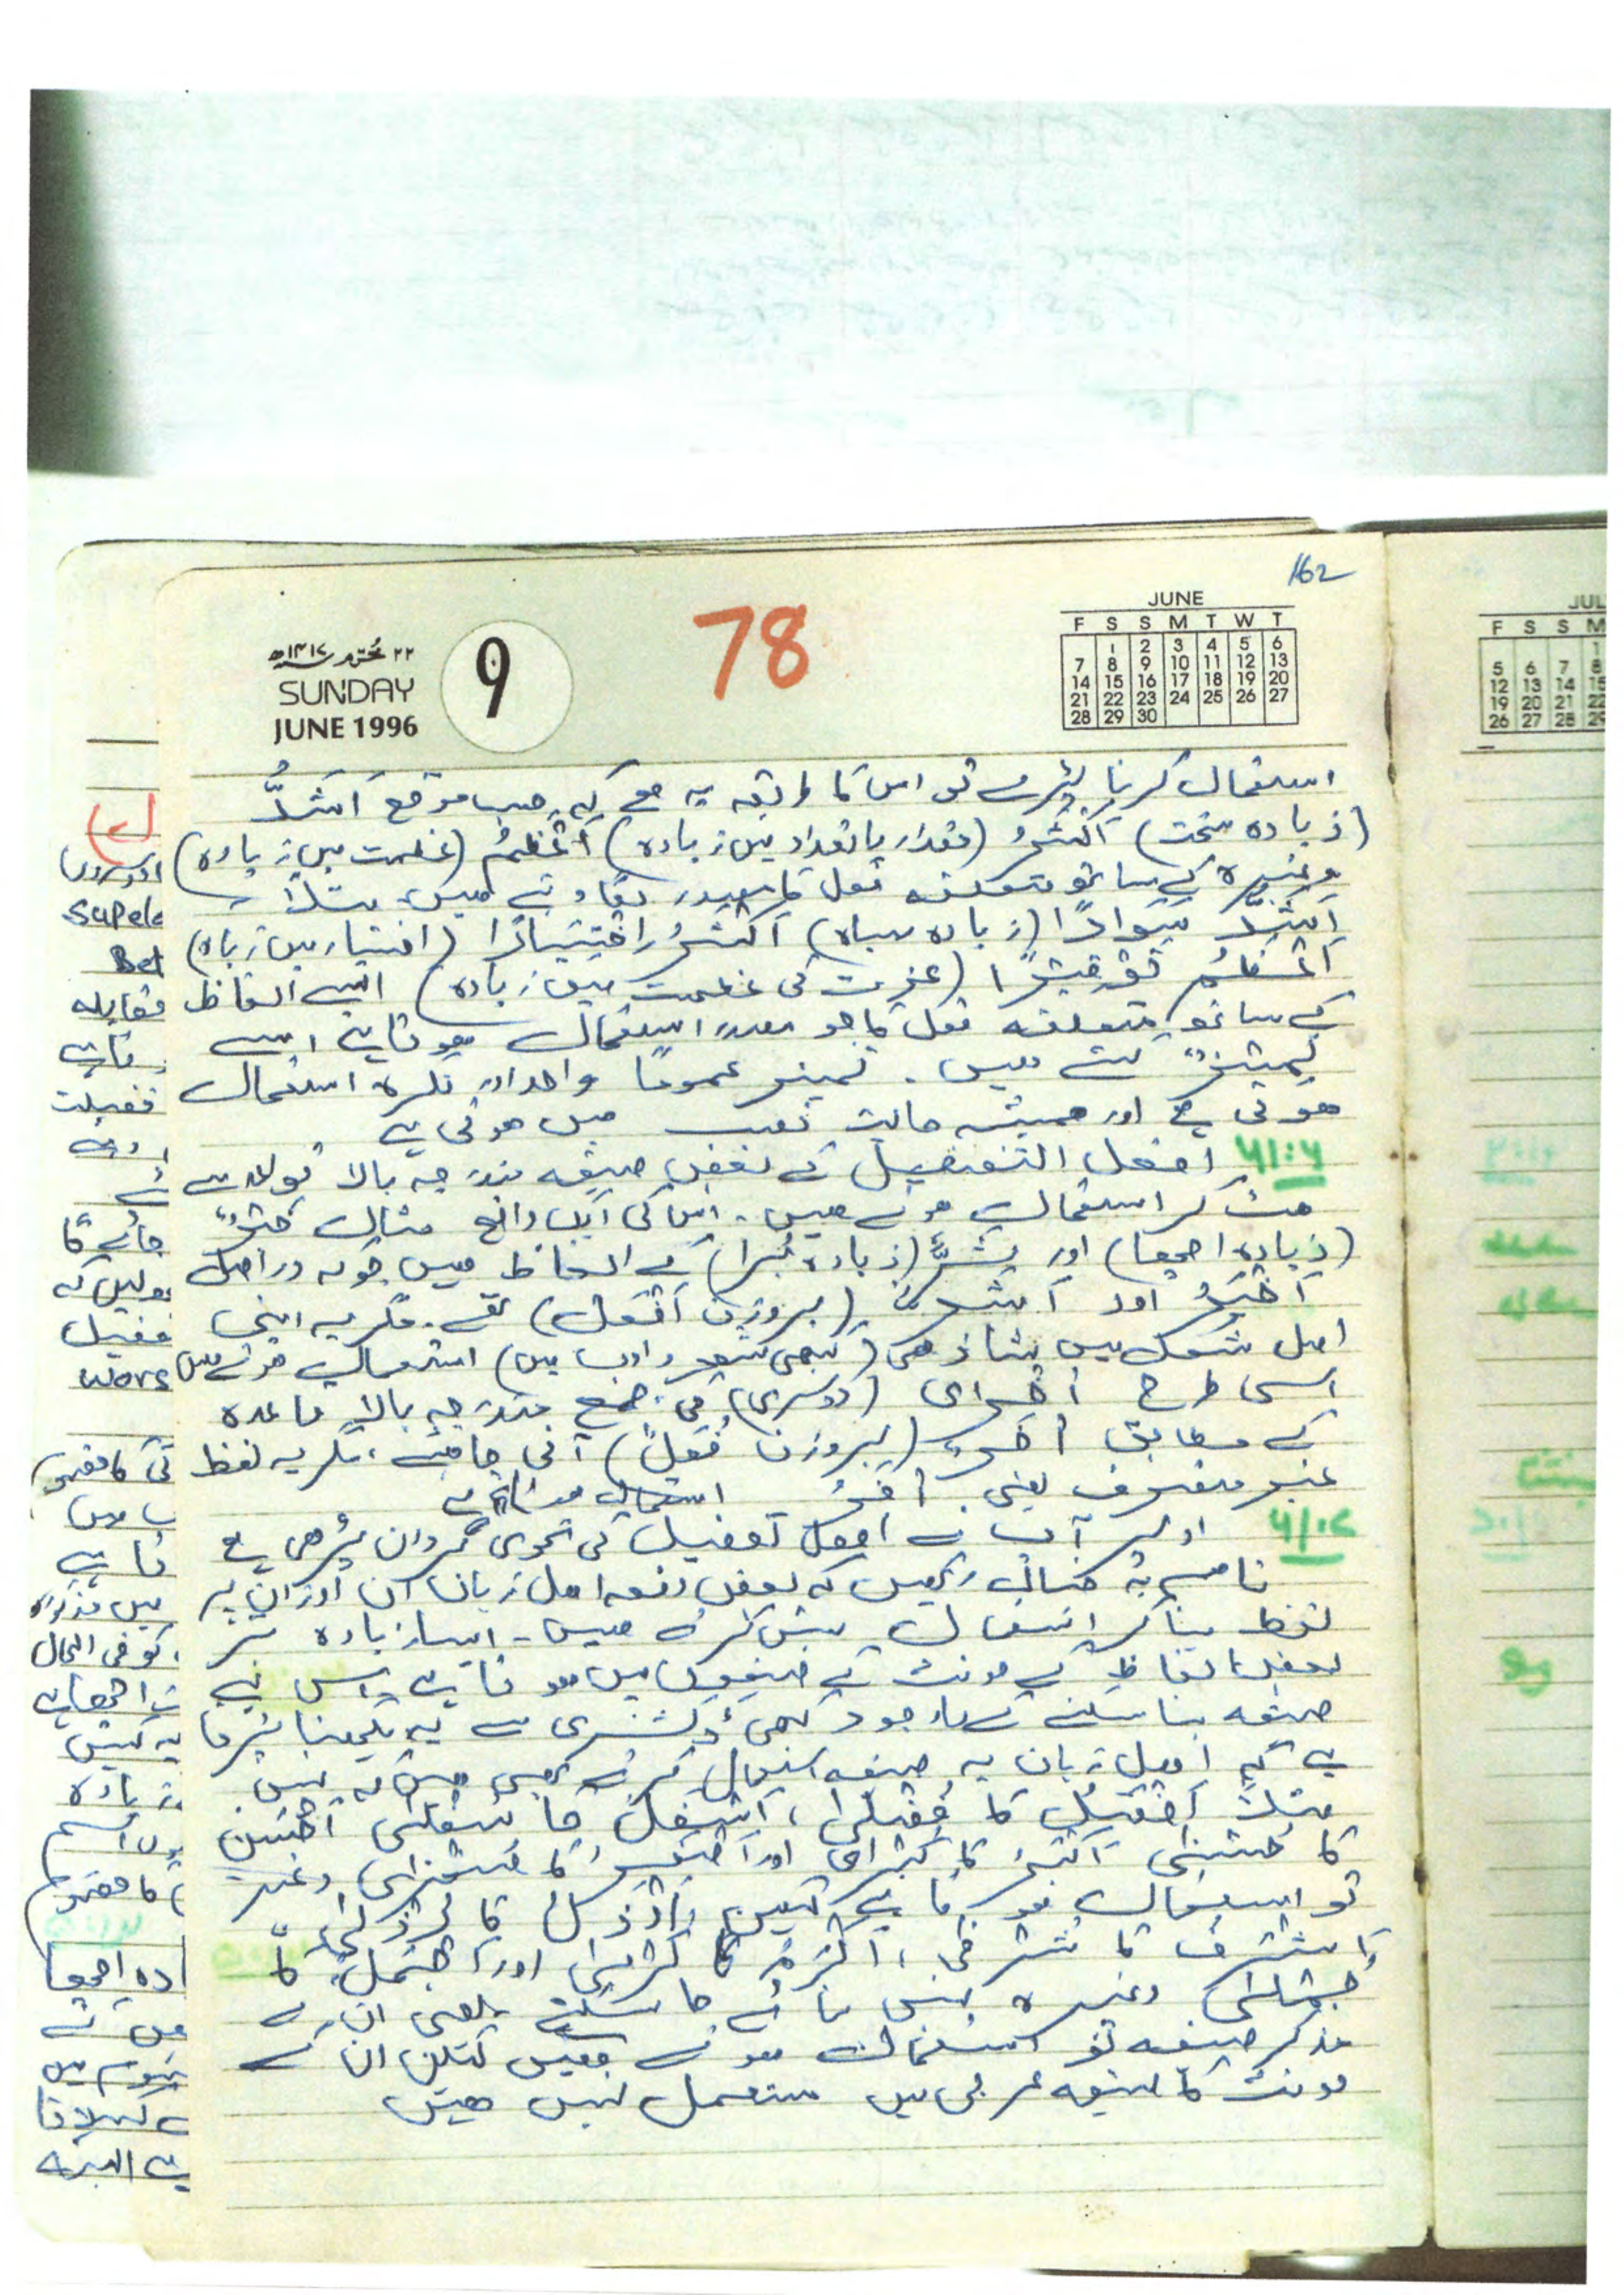 162
78
۲۲ محرم ۱۴۱۷ھ
SUNDAY
JUNE 1996
9
JUNE
F S S M T W T
1 2 3 4 5 6
7 8 9 10 11 12 13
14 15 16 17 18 19 20
21 22 23 24 25 26 27
28 29 30
استعمال کرنا پڑے تو اس کا طریقہ یہ ہے کہ حسب موقع اَشَدُّ
(زیادہ سخت) اَکْثَرُ (مقدار یا تعداد میں زیادہ) اَعْظَمُ (عظمت میں زیادہ)
وغیرہ کے ساتھ متعلقہ فعل کا مصدر لگا دیتے ہیں۔ مثلاً
اَشَدُّ سَوَادًا (زیادہ سیاہ) اَکْثَرُ اِخْتِیَارًا (اختیار میں زیادہ)
اَعْظَمُ تَوْقِیْرًا (عزت کی عظمت میں زیادہ) ایسے الفاظ
کے ساتھ متعلقہ فعل کا جو مصدر استعمال ہوتا ہے اسے
تمیز کہتے ہیں۔ تمیز عموماً واحد اور نکرہ استعمال
ہوتی ہے اور ہمیشہ حالت نصب میں ہوتی ہے
۶۱:۶ افعل التفضیل کے بعض صیغے مندرجہ بالا قواعد سے
ہٹ کر استعمال ہوتے ہیں۔ اس کی ایک واضح مثال خَیْرٌ
(زیادہ اچھا) اور شَرٌّ (زیادہ بُرا) کے الفاظ ہیں جو کہ دراصل
اَخْیَرُ اور اَشَرُّ (بروزن اَفْعَلُ) تھے۔ مگر یہ اپنی
اصل شکل میں شاذ ہی (کبھی شعر و ادب میں) استعمال ہوتے ہیں
اسی طرح اُخْرٰی (دوسری) کی جمع مندرجہ بالا قاعدہ
کے مطابق اُخَرٌ (بروزن فُعَلٌ) آنی چاہئے، مگر یہ لفظ
غیر منصرف یعنی اُخَرُ استعمال ہوتا ہے
۶۱:۷ اوپر آپ نے افعل تفضیل کی نحوی گردان پڑھی ہے
تاہم یہ خیال رکھیں کہ بعض دفعہ اہل زبان ان اوزان پر
لفظ بنا کر استعمال نہیں کرتے ہیں۔ ایسا زیادہ تر
بعض الفاظ کے مونث کے صیغوں میں ہوتا ہے۔ اس لئے
صیغہ بنا سکنے کے باوجود بھی ڈکشنری سے یہ دیکھنا پڑتا
ہے کہ اہل زبان یہ صیغہ استعمال کرتے بھی ہیں کہ نہیں
مثلاً اَفْضَلُ کا فُضْلٰی، اَسْفَلُ کا سُفْلٰی اَحْسَنُ
کا حُسْنٰی اَکْبَرُ کا کُبْرٰی اور اَصْغَرُ کا صُغْرٰی وغیرہ
تو استعمال ہوتا ہے لیکن اَرْذَلُ کا رُذْلٰی
اَشْرَفُ کا شُرْفٰی، اَکْرَمُ کا کُرْمٰی اور اَجْمَلُ کا
جُمْلٰی وغیرہ نہیں بنائے جا سکتے یعنی ان کے
مذکر صیغے تو استعمال ہوتے ہیں لیکن ان کے
مونث کا صیغہ عربی میں مستعمل نہیں ہیں
Supele
مقابلہ
جائے گا
wors
فی الحال
زیادہ
JUL
F S S M
5 6 7 8
12 13 14 15
19 20 21 22
26 27 28 29